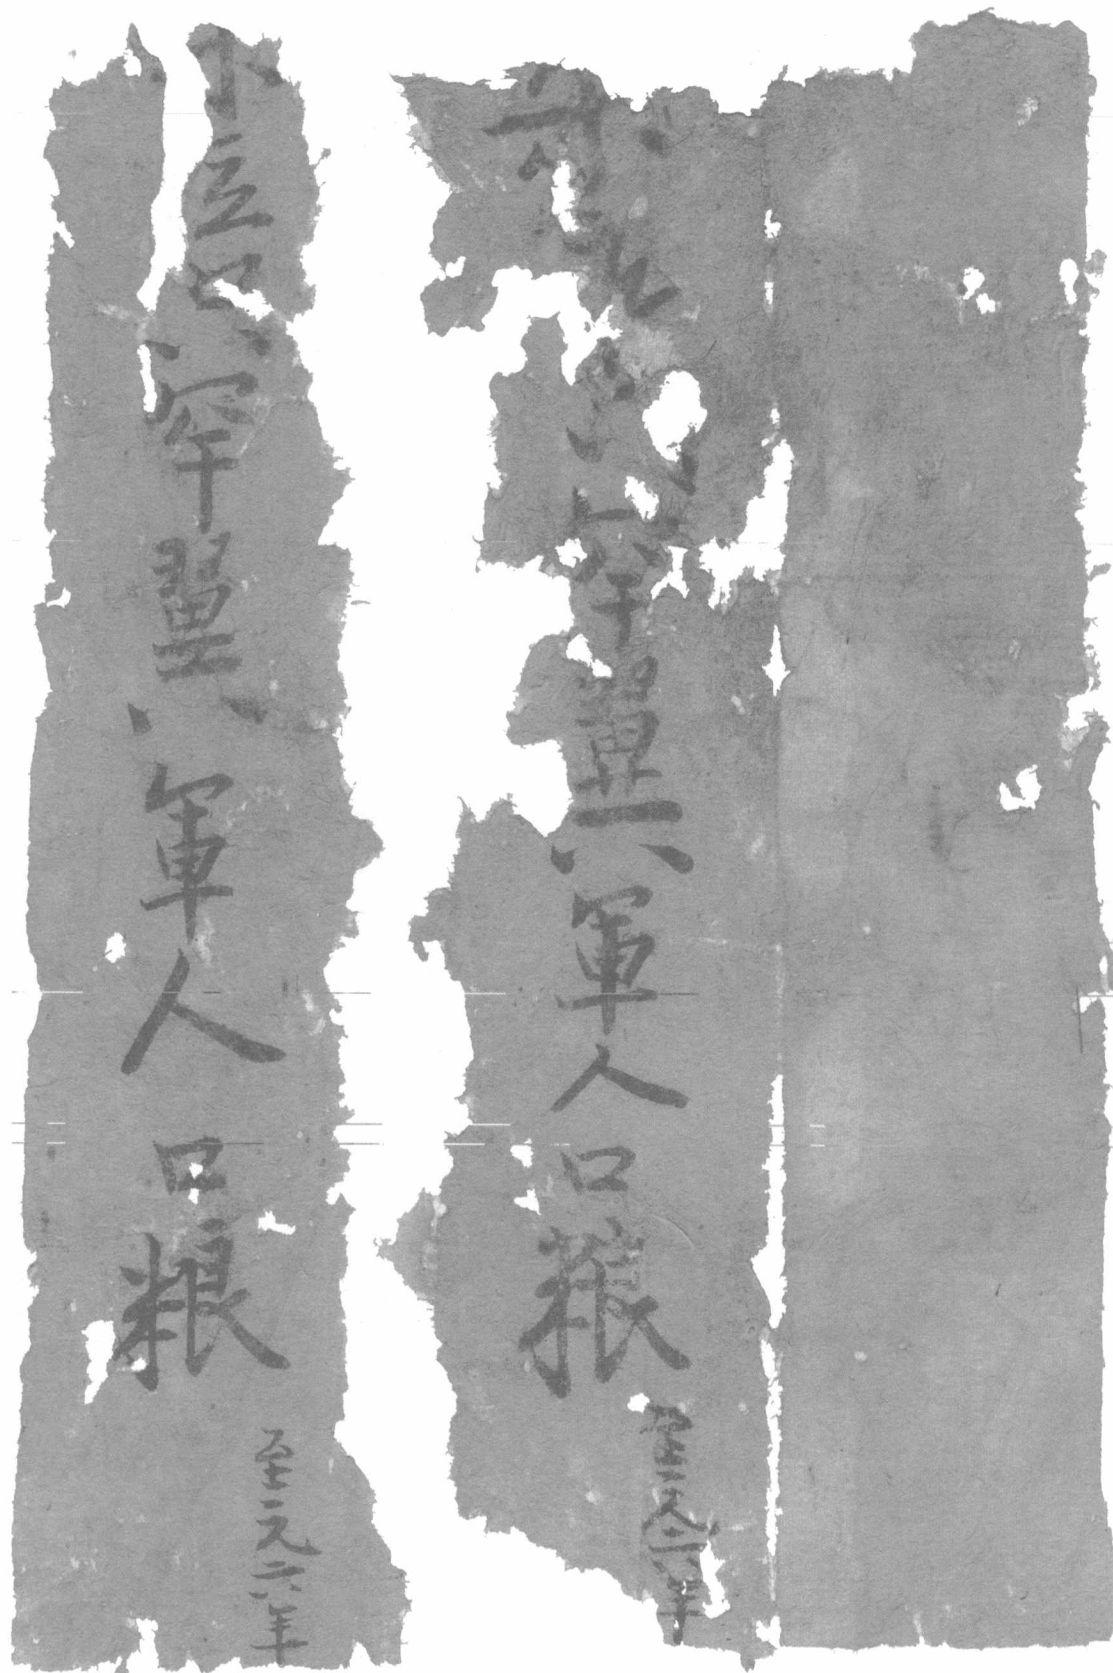 罕翼軍人口粮
至元六年
立只罕翼軍人口粮
至元六年